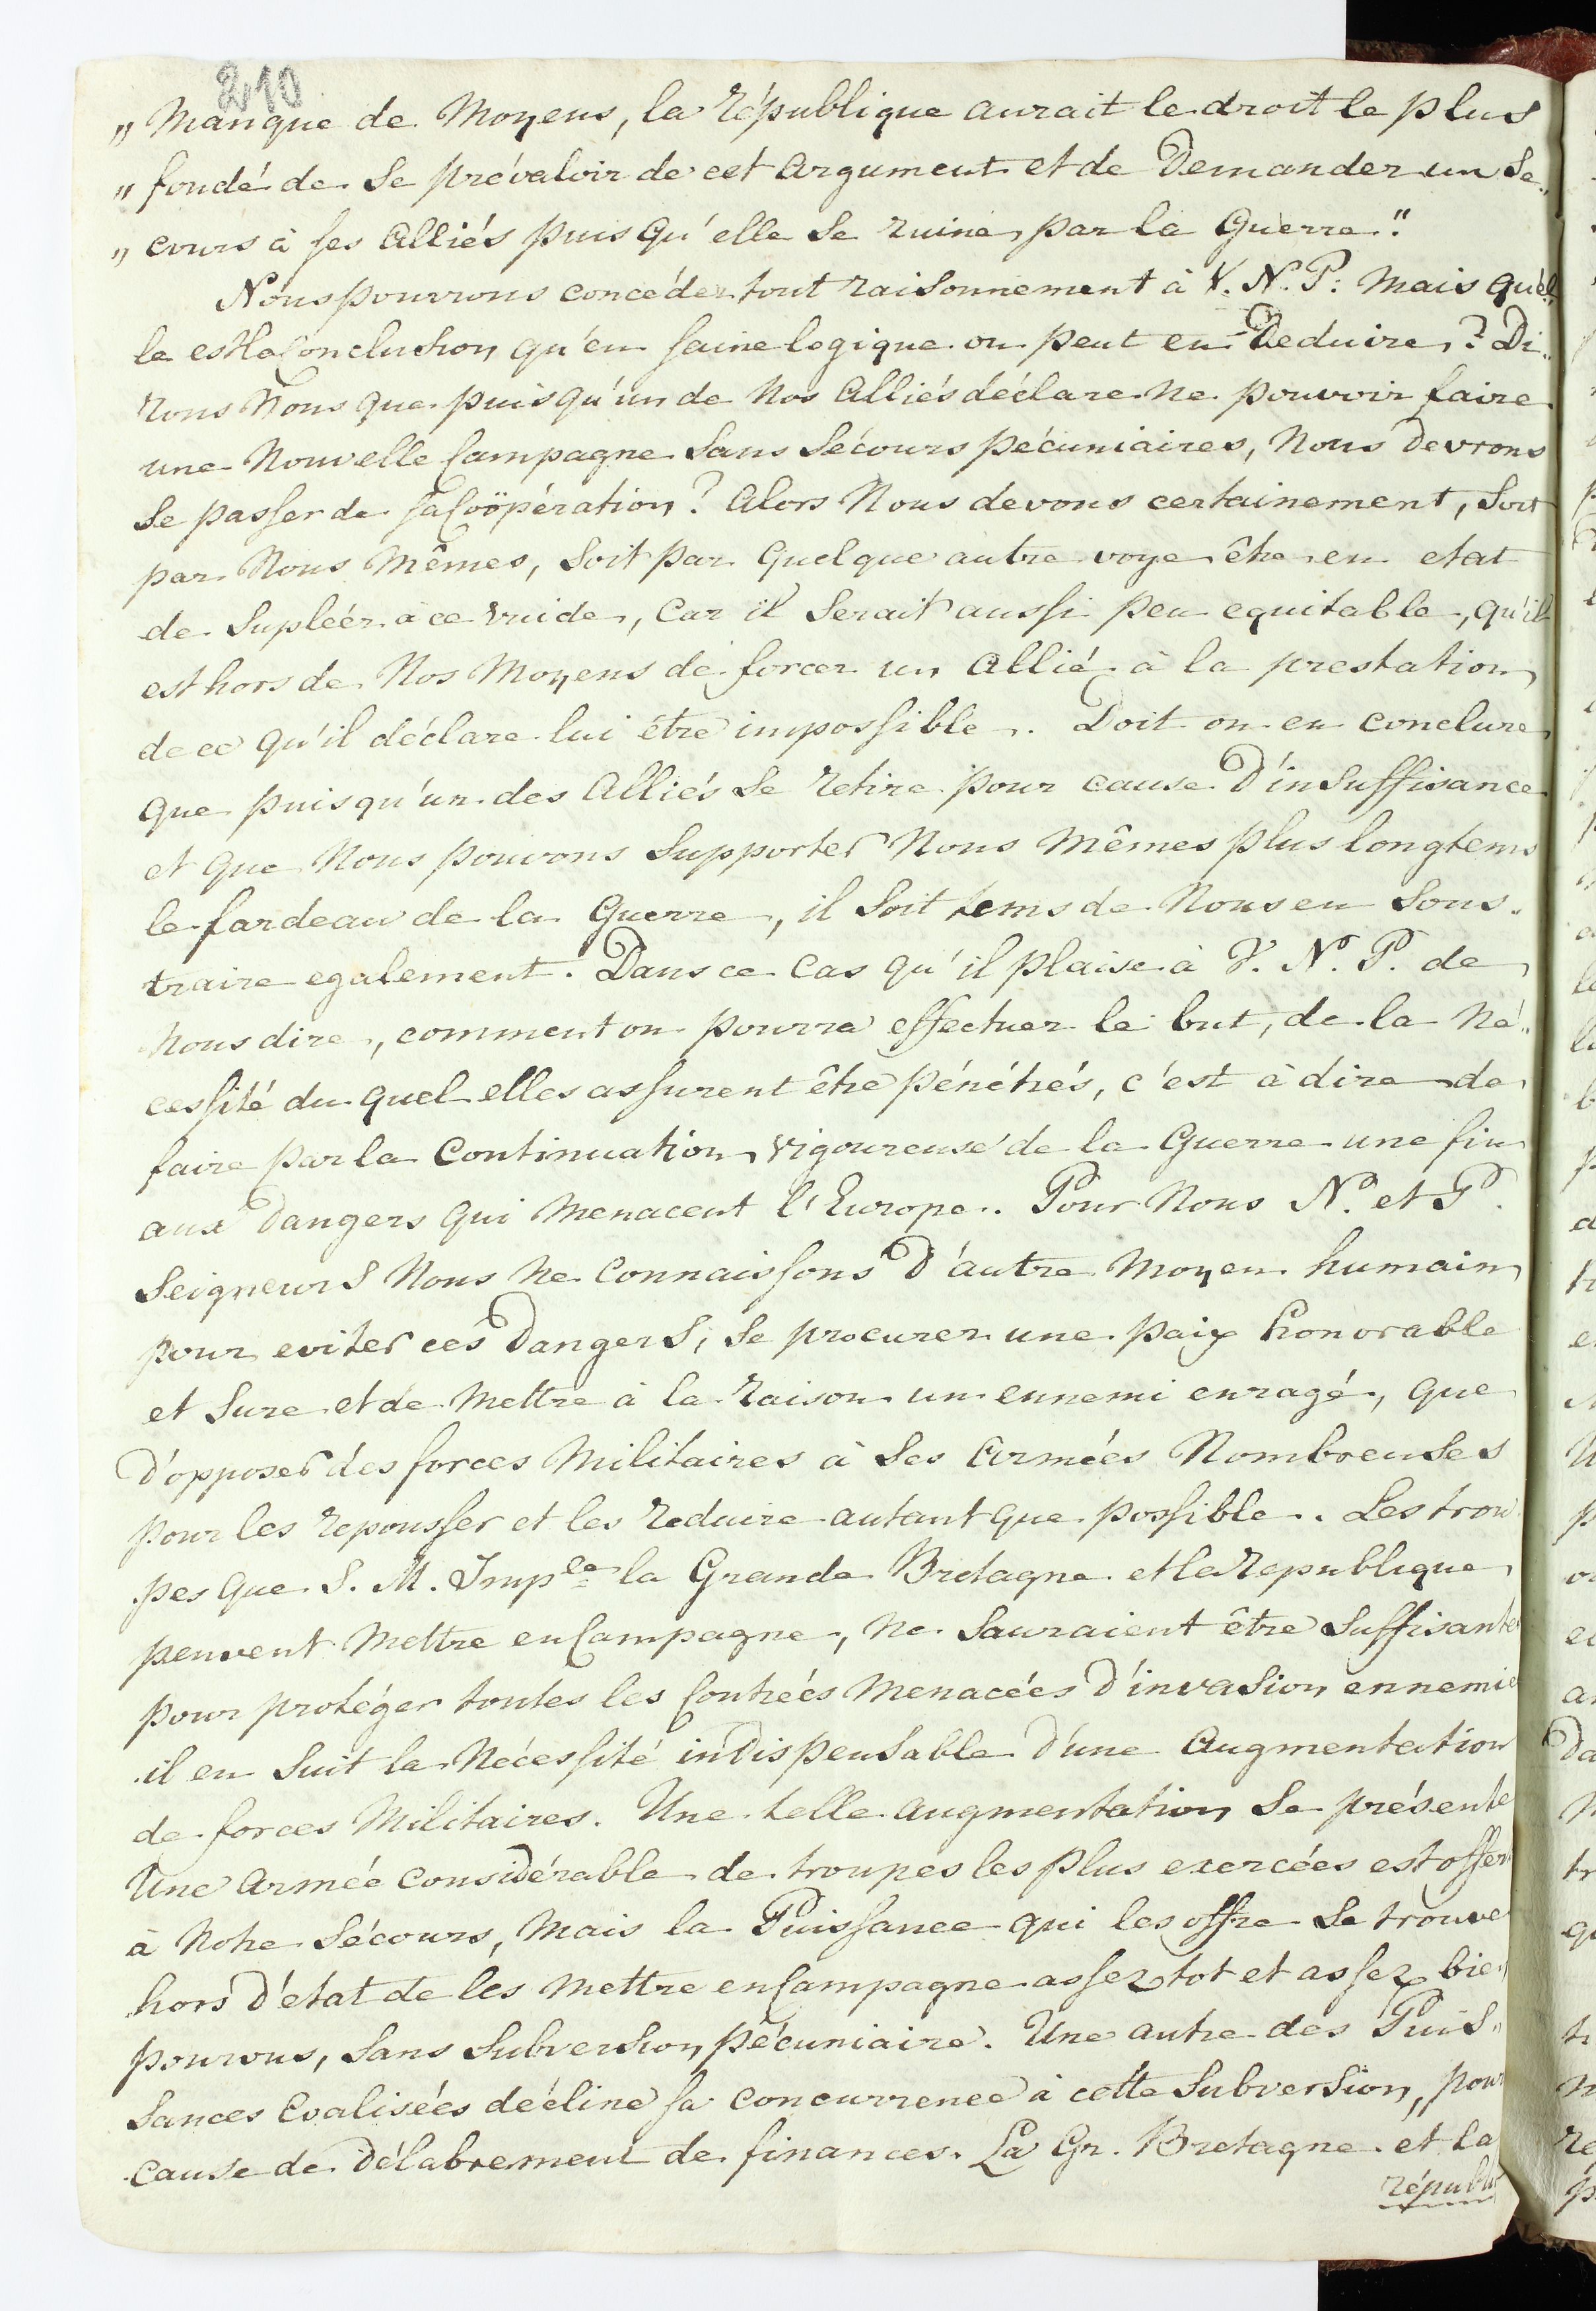 210
„ Manque de Moyens, la République aurait le droit le plus
„ fondé de Se prévaloir de cet Argument et de Demander un Se„
„ cours à ses Alliés puis qu'elle Se ruine par la Guerre."
Nous pouvrons concéder tout raisonnement à V. N. P: Mais quel„
le est la Conclusion, qu'en saine logique on peut en Deduire,? Di„
rons Nous que puisqu'un de Nos Alliés déclare ne pouvoir faire
une Nouvelle Campagne Sans Sécours pécuniaires, Nous Devrons
Se passer de sa Coöpération? Alors Nous devons certainement, Soit
par Nous Mêmes, Soit par quelque autre voye être en etat
de Supleér à ce vuide, Car il Serait aussi peu equitable, qu'il
est hors de Nos Moyens de forcer un Allié à la prestation
de ce qu'il déclare lui être impossible. Doit on en conclure
que puisqu'un des Alliés Se retire pour cause D'insuffisance
et que Nous pouvons Supporter Nous Mêmes plus longtems
le fardeau de la Guerre, il Soit tems de Nous en Sous„
traire egalement. Dans ce Cas qu'il plaise à V. N. P. de
Nous dire, comment on pourra effectuer le but, de la Né„
cessité du quel elles assurent être pénétrés, c'est à dire de
faire par la Continuation vigoureuse de la Guerre une fin
aux Dangers qui Menacent l'Europe. Pour Nous N. et P.
Seigneurs Nous Ne Connaissons D'autre Moyen humain
pour eviter ces Dangers, Se procurer une paix honorable
et Sure et de Mettre à la raison un ennemi enragé, que
D'opposer des forces Militaires à Ses Armées Nombreuses
pour les repousser et les reduire autant que possible. Les trou
pes que S. M. Imp.le la Grande Bretagne et la republique
peuvent Mettre en Campagne, Ne Sauraient être Suffisantes
pour protéger toutes les Contreés Menacées D'invasion ennemie
il en Suit la Nécessité inDispensable D'une Augmentation
de forces Militaires. Une telle augmentation Se présente
Une Armée considérable de troupes les plus exercées est offer
à Notre Sécours, Mais la Puissance qui les offre Se trouve
hors D'etat de les Mettre en Campagne assez tot et assez bien
pourvus, Sans Subversion pécuniaire. Une autre des Puis„
Sances Coalisées décline sa concurrence à cette Subversion, pour
cause de Délabrement de finances. La Gr. Bretagne et la
républi